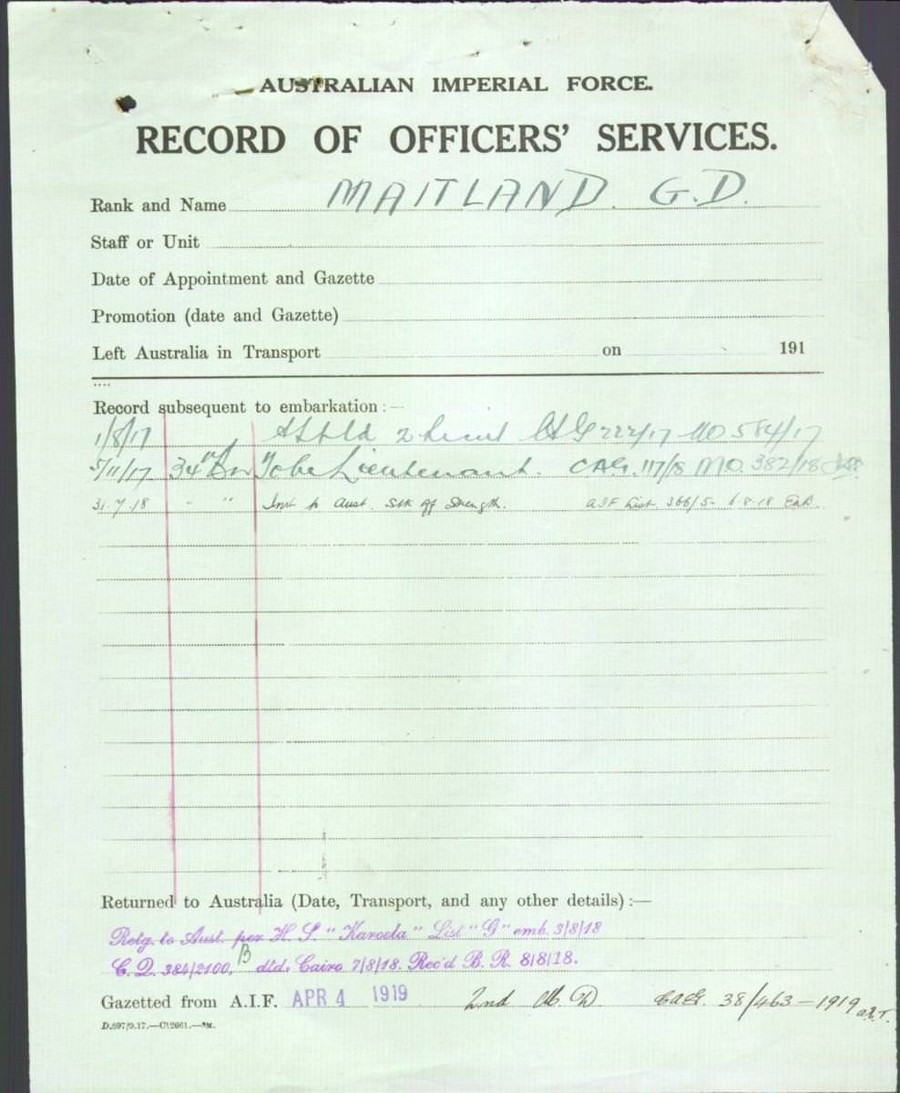 AUSTRALIAN IMPERIAL FORCE.
RECORD OF OFFICERS' SERVICES.
Rank and Name MAITLAND. G.D.
Staff or Unit
Date of Appointment and Gazette
Promotion (date and Gazette)
Left Australia in Transport on 191
Record subsequent to embarkation :—
1/8/17 2 Lieut CAG 222/17 MO 584/17
5/11/17 34th Bn To be Lieutenant. CAG. 117/18 MO. 382/18
31.7.18 " " Inv to Aust. Stk off Strength. AIF List 366/5- 6.8.18
Returned to Australia (Date, Transport, and any other details) :—
Retg. to Aust. per H. S. "Karoola" List "G" emb. 3/8/18
C.D. 384/2100, B dtd. Cairo 7/8/18. Rec'd B. R. 8/8/18.
Gazetted from A.I.F. APR 4 1919 2nd M. D. CAG. 38/463—1919
D.597/9.17.—C12661.—5M.